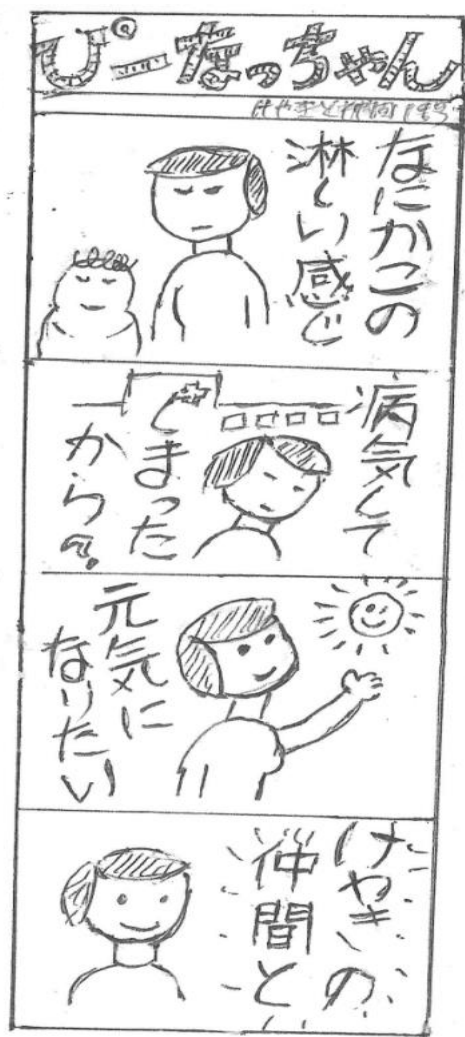 ぴーなっちゃん
けやきと仲間 183
なにかこの
淋しい感じ
病気して
しまった
から?
元気に
なりたい
けやきの
仲間と